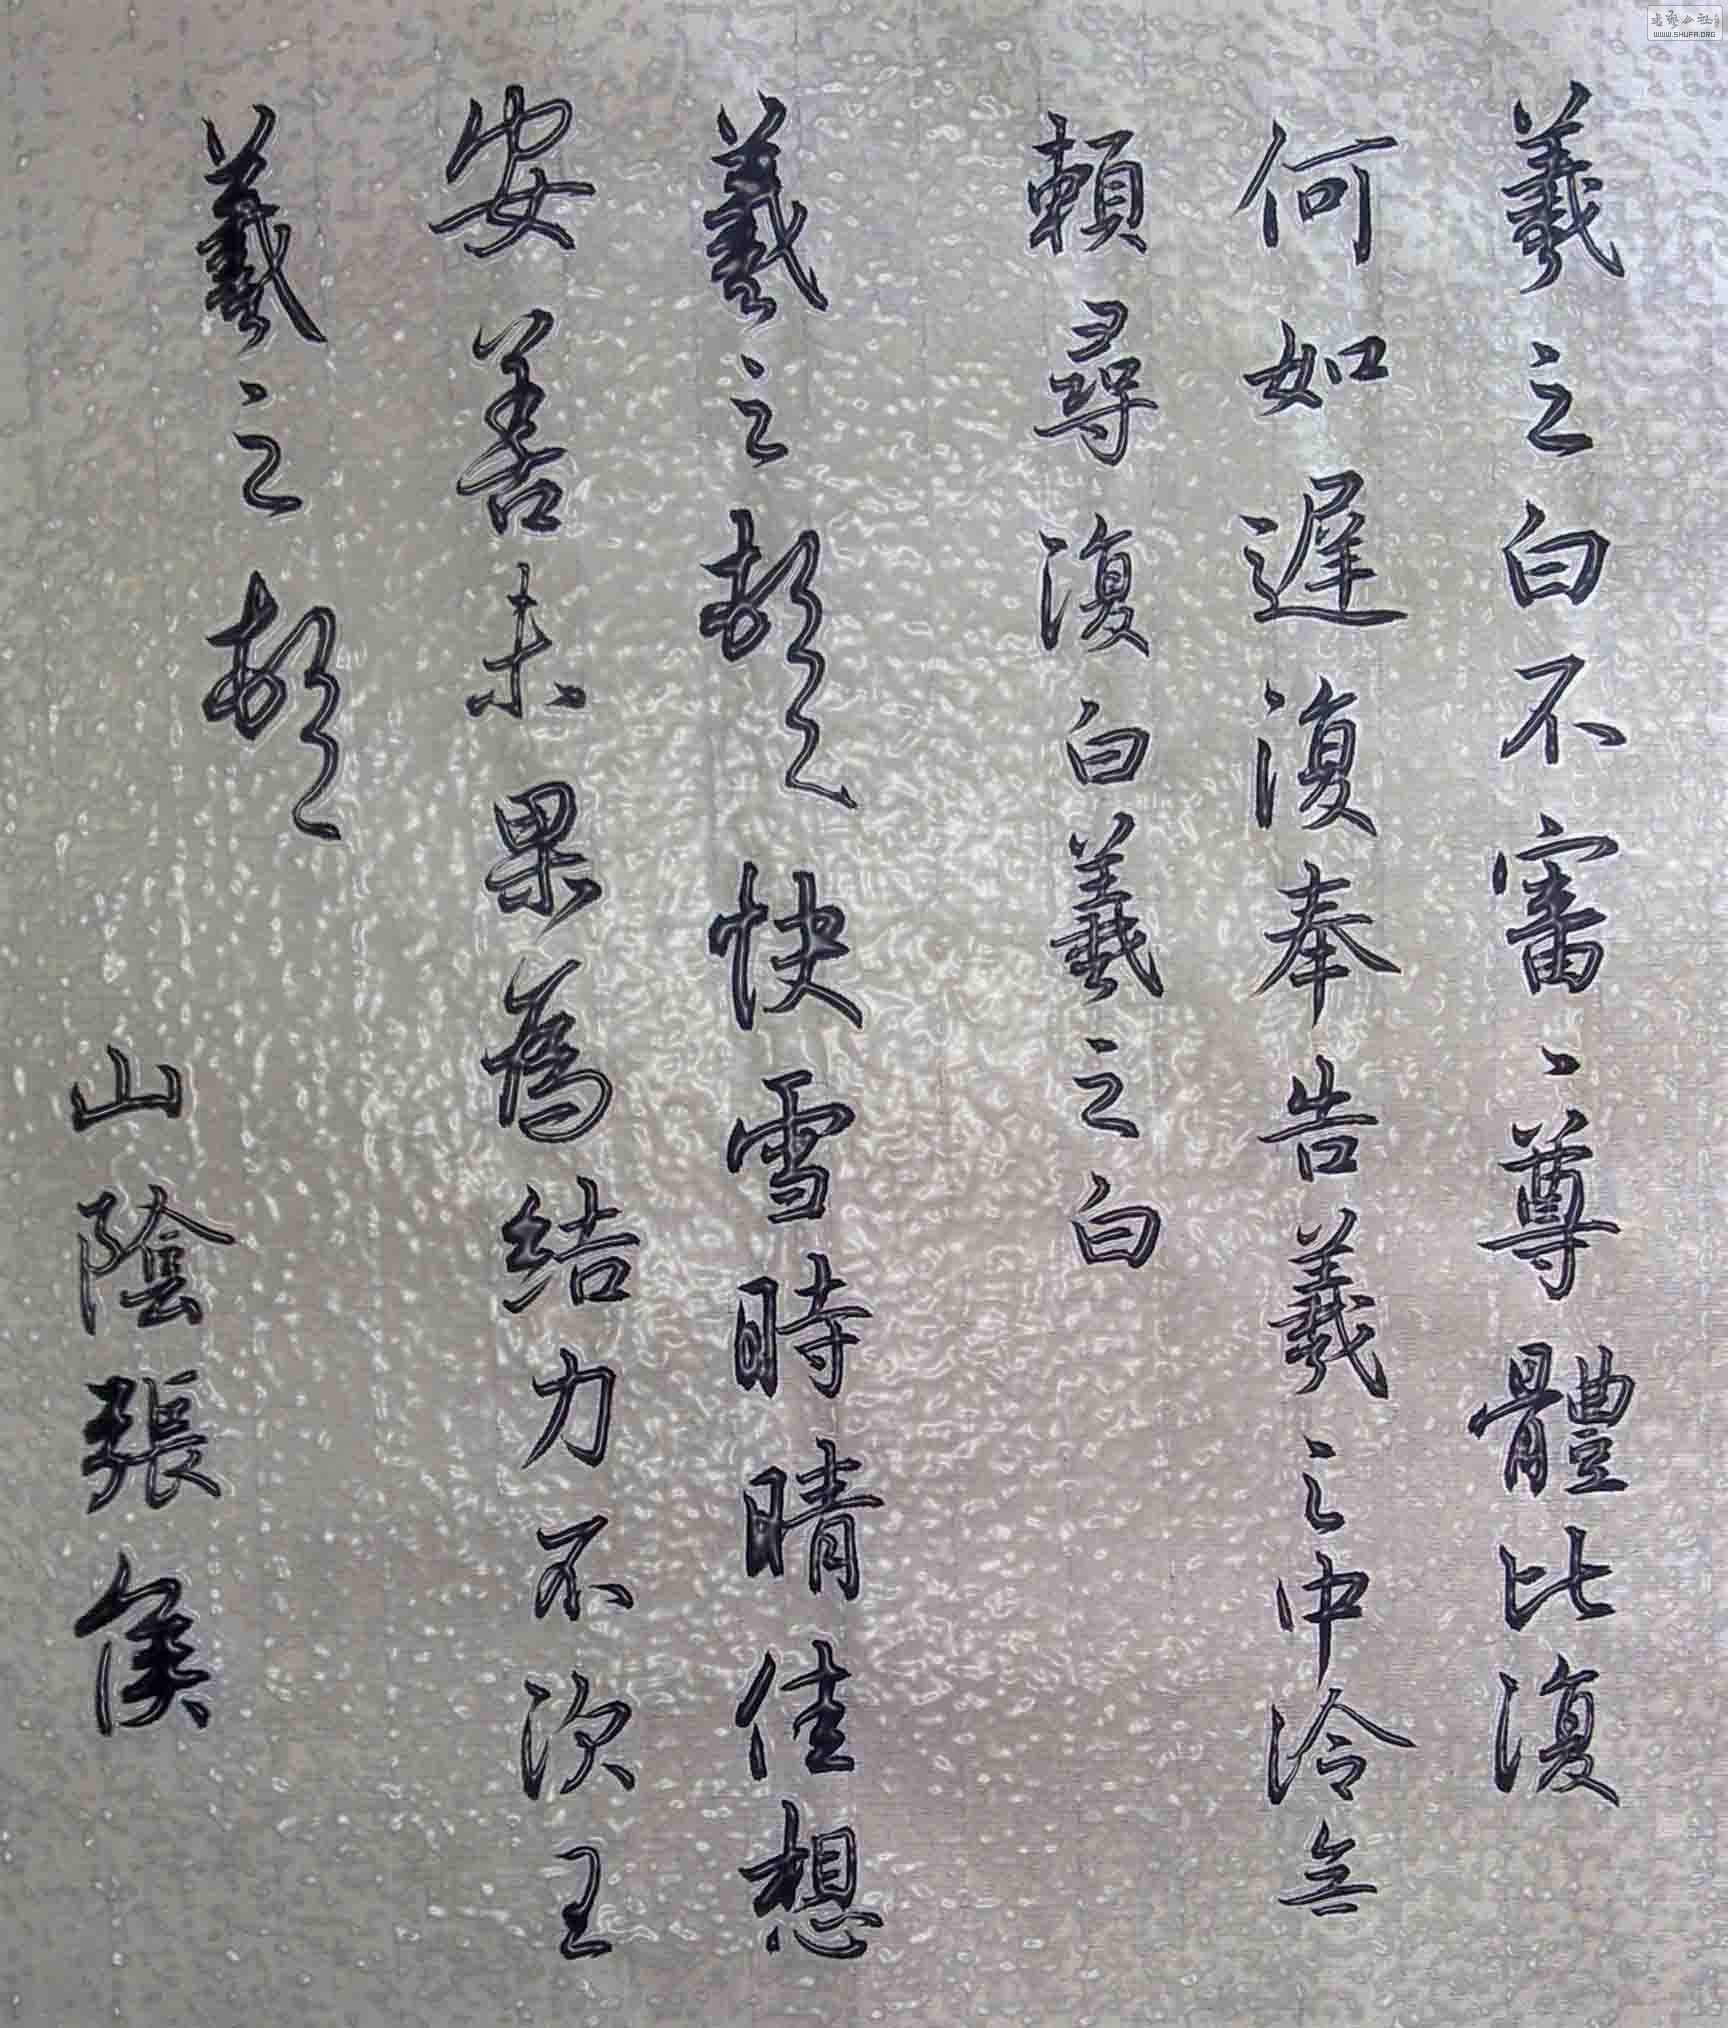 羲之白不審、尊體比復
何如遲復奉告羲之中冷無
賴尋復白羲之白
羲之頓首快雪時晴佳想
安善未果為結力不次王
羲之頓首
山陰張侯
书艺公社
WWW.SHUFA.ORG